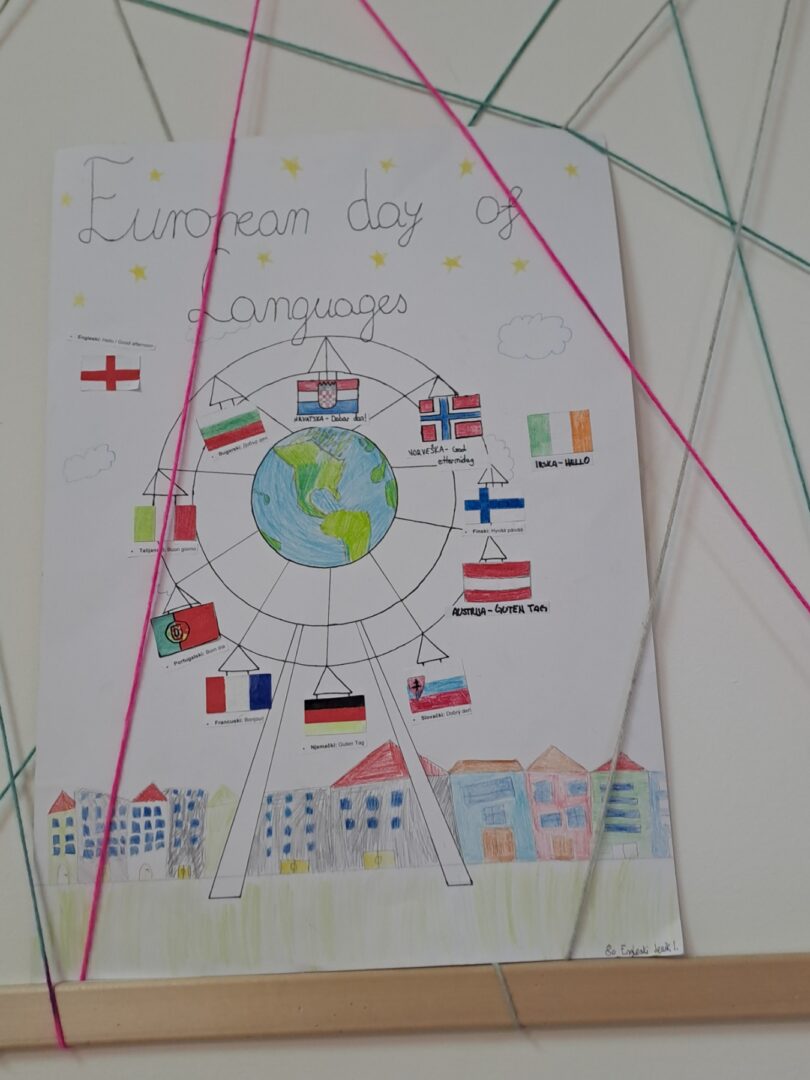 European day of
Languages
Engleski: Hello / Good afternoon
HRVATSKA - Dobar dan!
Bugarski:
NORVEŠKA - God
ettermidag
IRSKA - HELLO
Finski: Hyvää päivää
Talijanski: Buon giorno
AUSTRIJA - GUTEN TAG
Portugalski: Bom dia
Francuski: Bonjour
Slovački: Dobrý deň
Njemački: Guten Tag
Engleski jezik